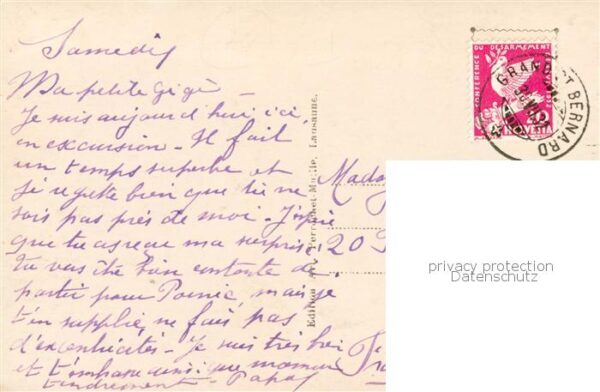 Samedi
Ma petite Gégé -
Je suis aujourd'hui ici,
en excursion - Il fait
un temps superbe et
je regrette bien que tu ne
sois pas près de moi - J'espère
que tu as reçu ma surprise,
Tu vas être bien contente de
partir pour mais je
t'en supplie, ne fais pas
d'excentricités - Je suis très bien
et t'embrasse ainsi que maman
tendrement - Papa
Edition Art. Perrochet- Lausanne.
CONFERENCE DU DESARMEMENT 1932
20
HELVETIA
GRAND ST BERNARD
Mada
20
privacy protection
Datenschutz